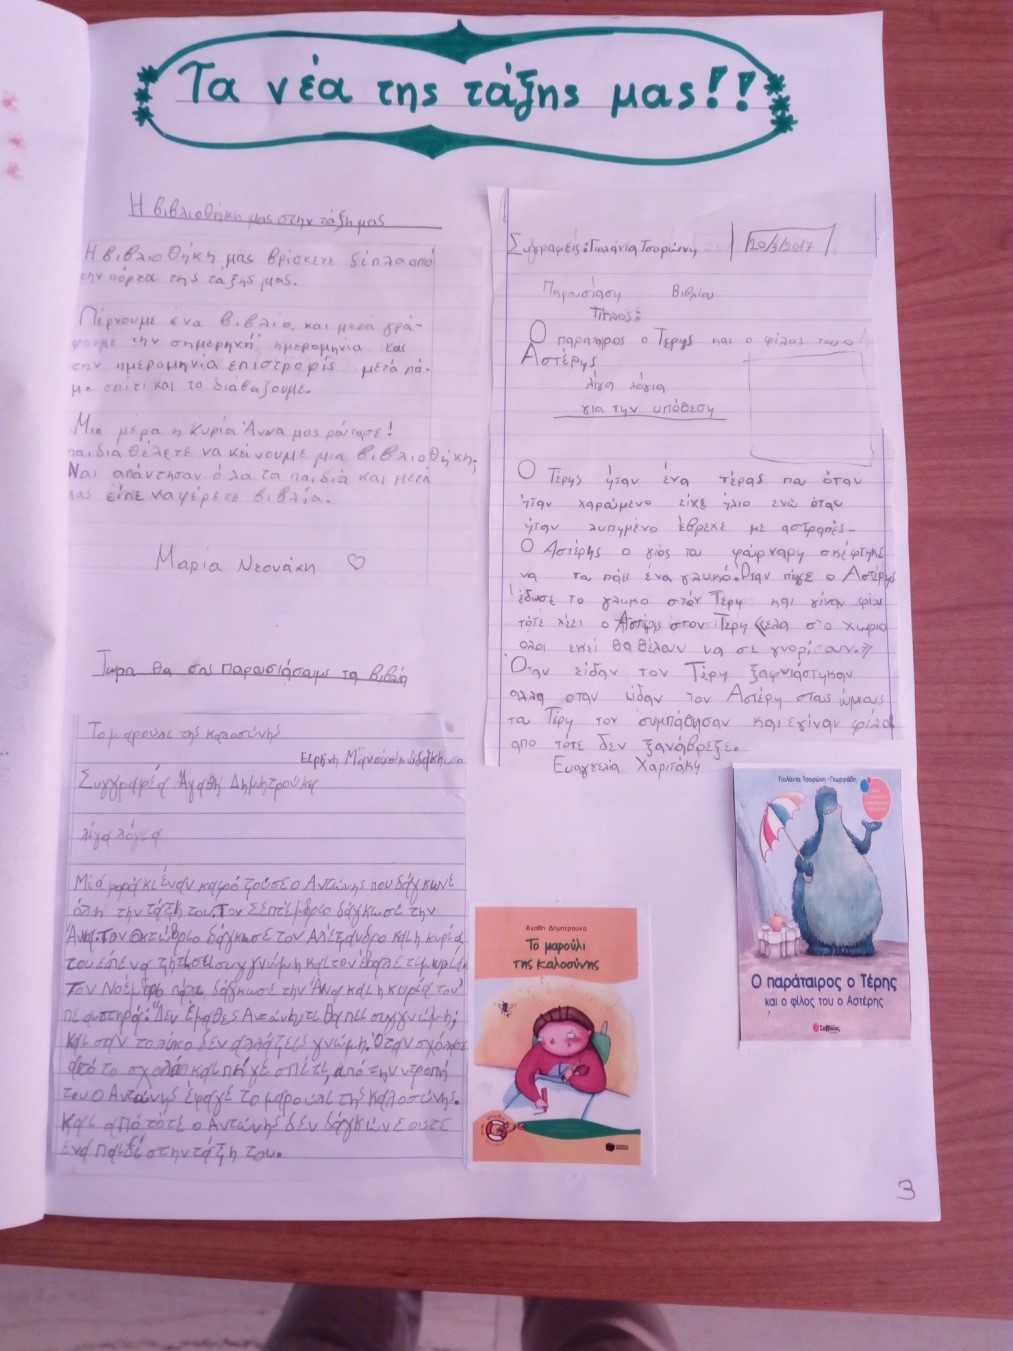 Τα νέα της τάξης μας!!
Η βιβλιοθήκη μας στην τάξη μας
Η βιβλιοθήκη μας βρίσκετε δίπλα από
την πόρτα της τάξης μας.
Πέρνουμε ένα βιβλίο και μετά γρά-
φουμε την σημερηνή ημερομηνία και
την ημερομηνία επιστροφίς μετά πά-
με σπίτι και το διαβάζουμε.
Μια μέρα η κυρία Άννα μας ρώτησε!
παιδιά θέλετε να κάνουμε μια βιβλιοθήκη;
Ναι απάντησαν όλα τα παιδιά και μετά
μας είπε να φέρετε βιβλία.
Μαρία Ντουάκη ♡
Τώρα θα σας παρουσιάσουμε τα βιβλία
Το μαρούλι της καλοσύνης
Ειρήνη
Συγγραφέα Αγαθή Δημητρούκα
λίγα λόγια
Μία φορά κι έναν καιρό ζούσε ο Αντώνης που δάγκωνε
όλη την τάξη του. Τον Σεπτέμβριο δάγκωσε την
Άνα. Τον Οκτώβριο δάγκωσε τον Αλέξανδρο και η κυρία
του είπε να ζητήσει συγγνώμη και τον έβαλε τιμωρία
Τον Νοέμβρη πάλι δάγκωσε την Άνα και η κυρία του
πε αυστηρά: Δεν έμαθες Αντώνη, τι θα πει συγγνώμη;
και σαν το λύκο δεν αλλάζεις γνώμη. Όταν σχόλασε
από το σχολείο και πήγε σπίτι, από την ντροπή
του ο Αντώνης έφαγε το μαρούλι της καλοσύνης.
Και από τότε ο Αντώνης δεν δάγκωνε ούτε
ένα παιδί στην τάξη του.
Συγραφείς: Γιολάντα Τσορώνη 20/3/2017
Παρουσίαση Βιβλίου
Τίτλος:
Ο παράταιρος ο Τέρης και ο φίλος του ο
Αστέρης
λίγα λόγια
για την υπόθεση
Ο Τέρης ήταν ένα τέρας που όταν
ήταν χαρούμενο είχε ήλιο ενώ όταν
ήταν λυπημένο έβρεχε με αστραπές.
Ο Αστέρης ο γιός του φούρναρη σκέφτηκε
να του πάει ένα γλυκό. Όταν πήγε ο Αστέρης
έδωσε το γλυκό στον Τέρη και γίναν φίλοι
τότε λέει ο Αστέρης στον Τέρη <<έλα στο χωριό
όλοι εκεί θα θέλουν να σε γνορίσουν.>>
Όταν είδαν τον Τέρη ξαφνιάστηκαν
αλλά όταν είδαν τον Αστέρη στους ώμους
του Τέρη τον συμπάθησαν και εγίναν φίλοι
από τότε δεν ξανάβρεξε.
Ευαγγελία Χαριτάκη
Γιολάντα Τσορώνη-Γεωργιάδη
Ο παράταιρος ο Τέρης
και ο φίλος του ο Αστέρης
Σαββάλας
Αγαθή Δημητρούκα
Το μαρούλι
της καλοσύνης
3